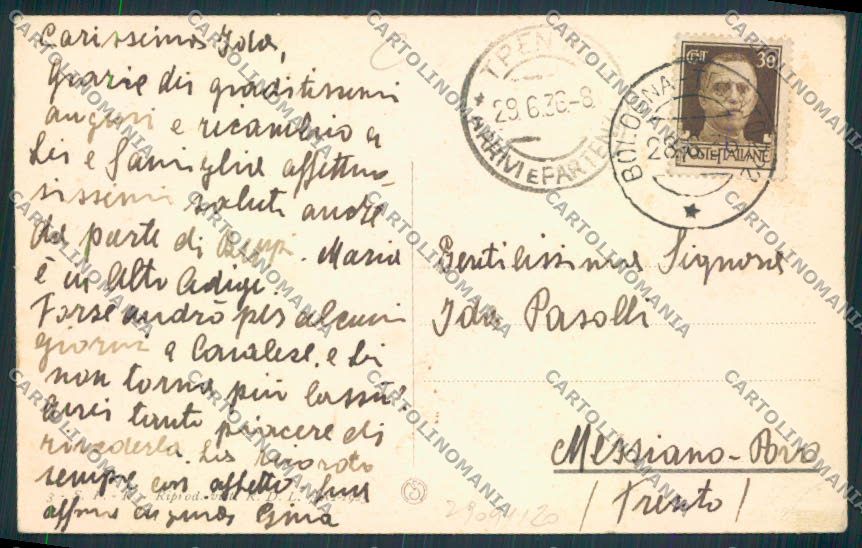 Carissima Ida,
grazie dei graditissimi
auguri e ricambio a
Lei e famiglia affettuo-
sissimi saluti anche
da parte di Beppi. Maria
è in Alto Adige.
Forse andrò per alcuni
giorni a Cavalese. e Lei
non torna più lassù?
Avrei tanto piacere di
rivederla. La ricordo
sempre con affetto. Sua
affma Gina
3 - S. A. F. - Riprod. R. D. L.
TRENTO
29.6.36-8
ARRIVI E PARTENZE
BOLOGNA
28
CENT 30
POSTE ITALIANE
Gentilissima Signora
Ida Pasolli
Messiano-Povo
/Trento/
29094/20
CARTOLINOMANIA